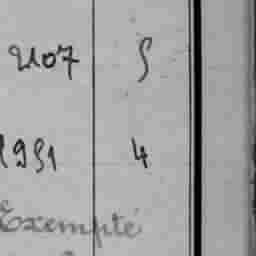 2107 5
1951 4
Exempté